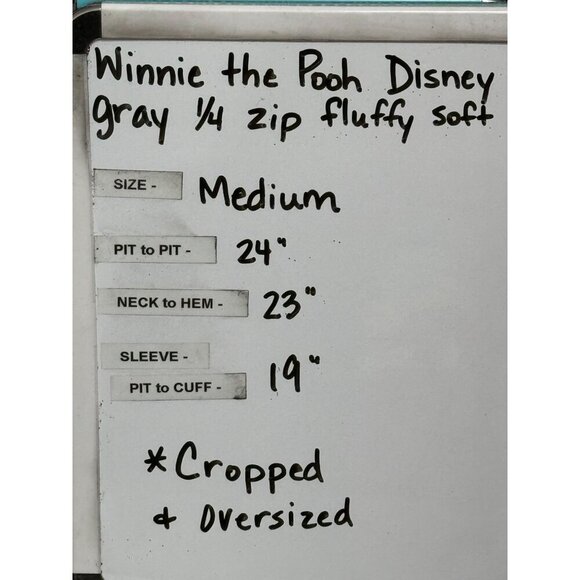 Winnie the Pooh Disney
gray 1/4 zip fluffy soft
SIZE - Medium
PIT to PIT - 24"
NECK to HEM - 23"
SLEEVE -
PIT to CUFF - 19"
*Cropped
& Oversized